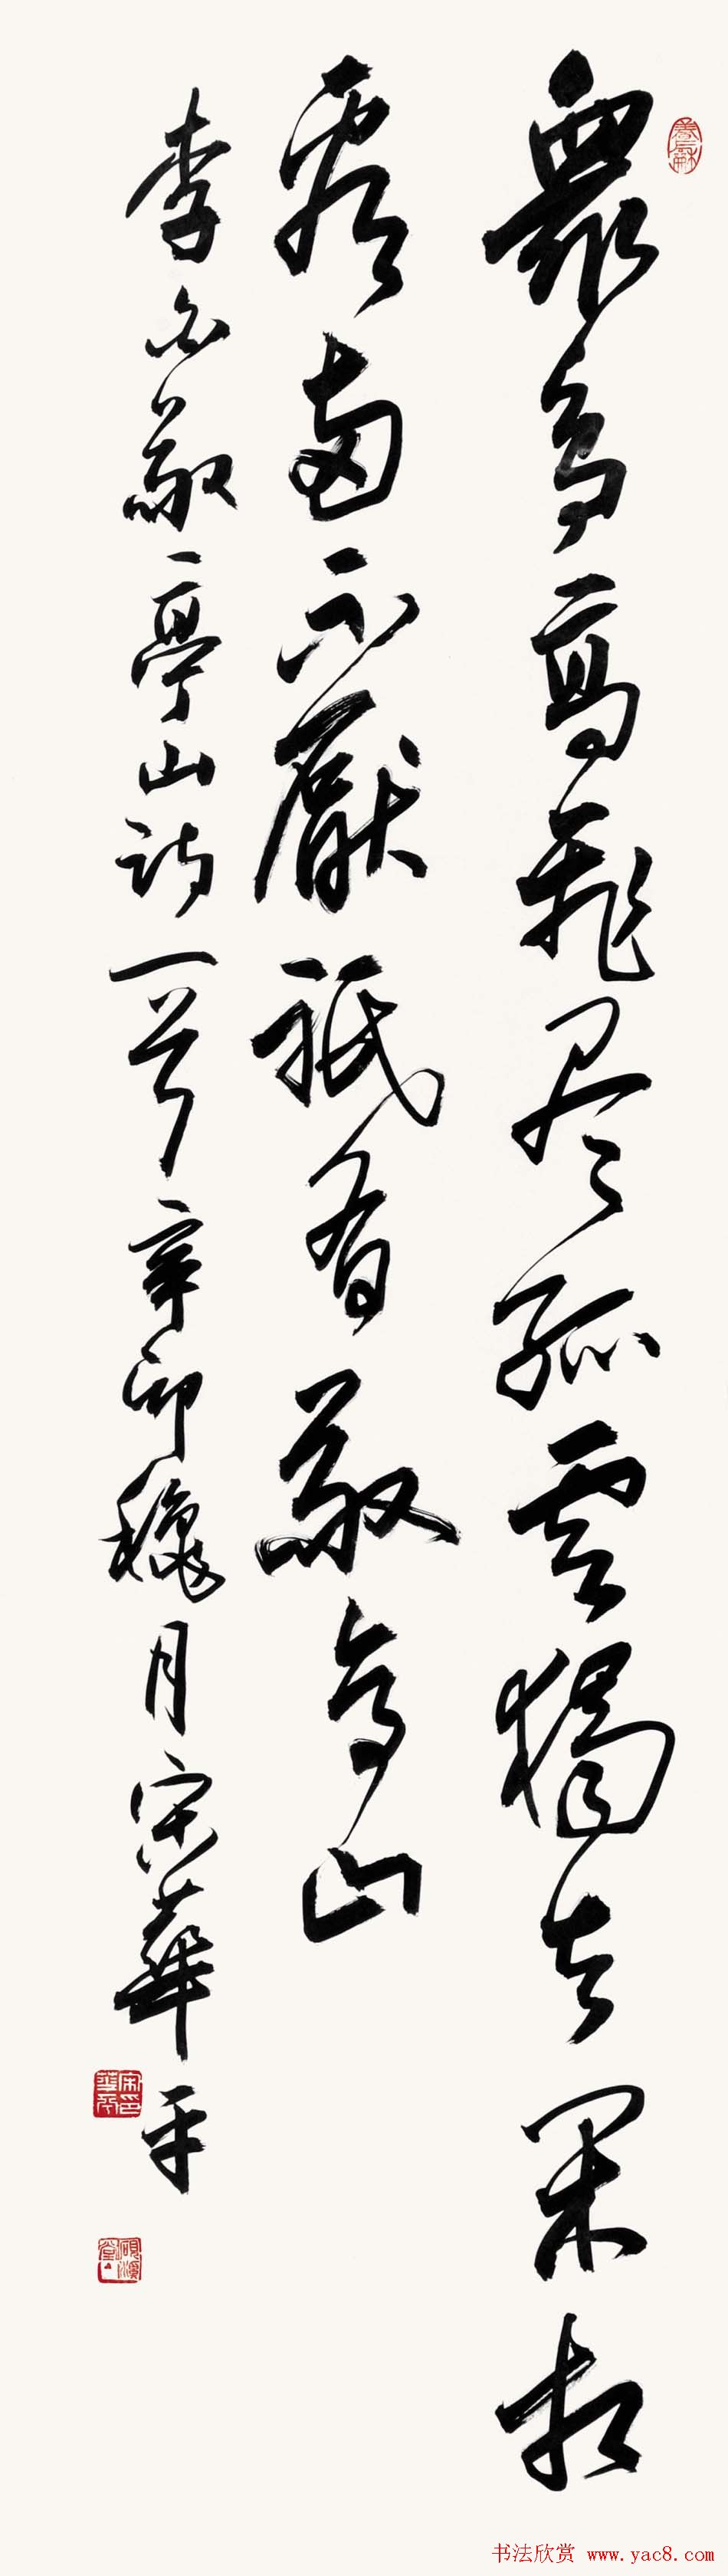 衆鳥高飛尽孤雲獨去闲相
看兩不厭祇有敬亭山
李白敬亭山詩一首辛卯穐月宋華平
宋華平印
书法欣赏 www.yac8.com